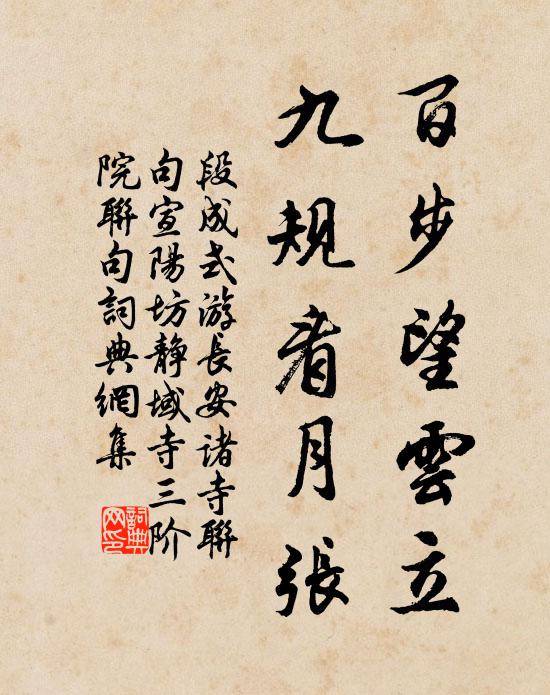 百步望雲立
九規看月張
段成式游長安诸寺聯
句宣陽坊静域寺三阶
院聯句詞典網集
詞典网印